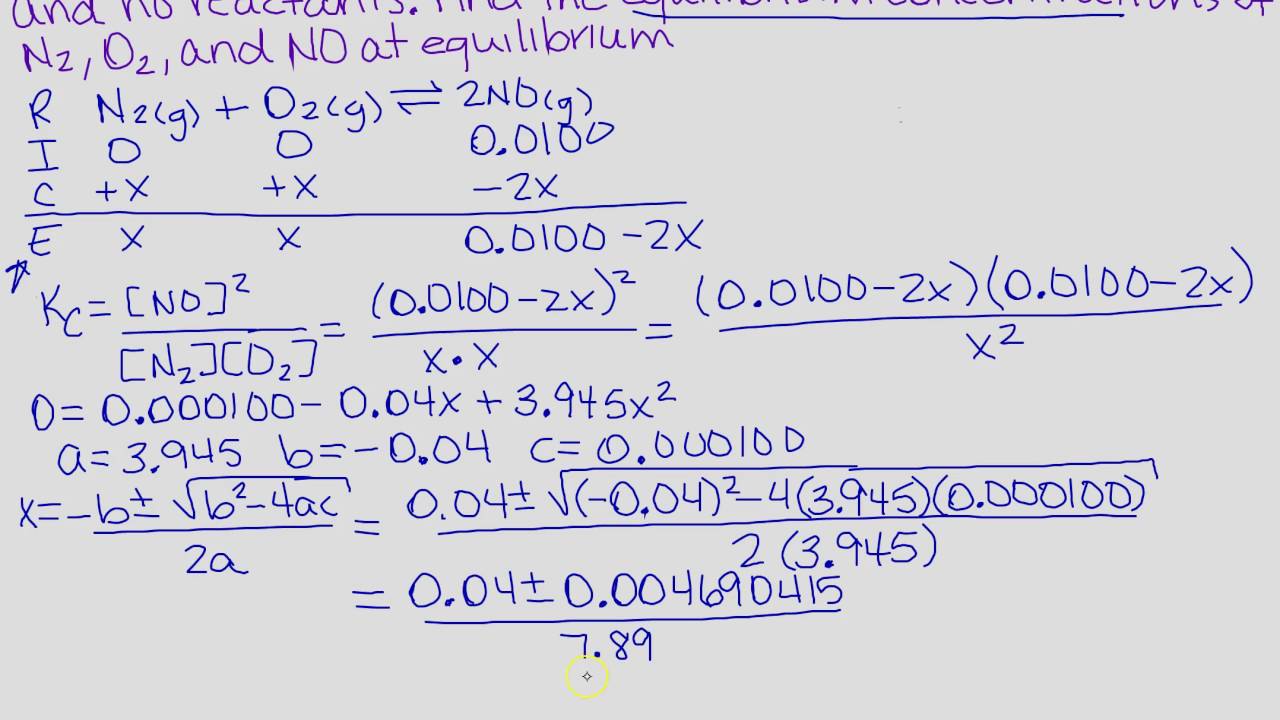 and no reactants. Find the equilibrium concentrations of
N₂, O₂, and NO at equilibrium
R N₂(g) + O₂(g) ⇌ 2NO(g)
I 0 0 0.0100
C +X +X -2X
E X X 0.0100 -2X
Kc = [NO]² / [N₂][O₂] = (0.0100-2x)² / x•x = (0.0100-2x)(0.0100-2x) / x²
0= 0.000100 - 0.04x + 3.945x²
a= 3.945 b= -0.04 c= 0.000100
x= -b ± √b²-4ac / 2a = 0.04 ± √(-0.04)²-4(3.945)(0.000100) / 2(3.945)
= 0.04 ± 0.004690415 / 7.89